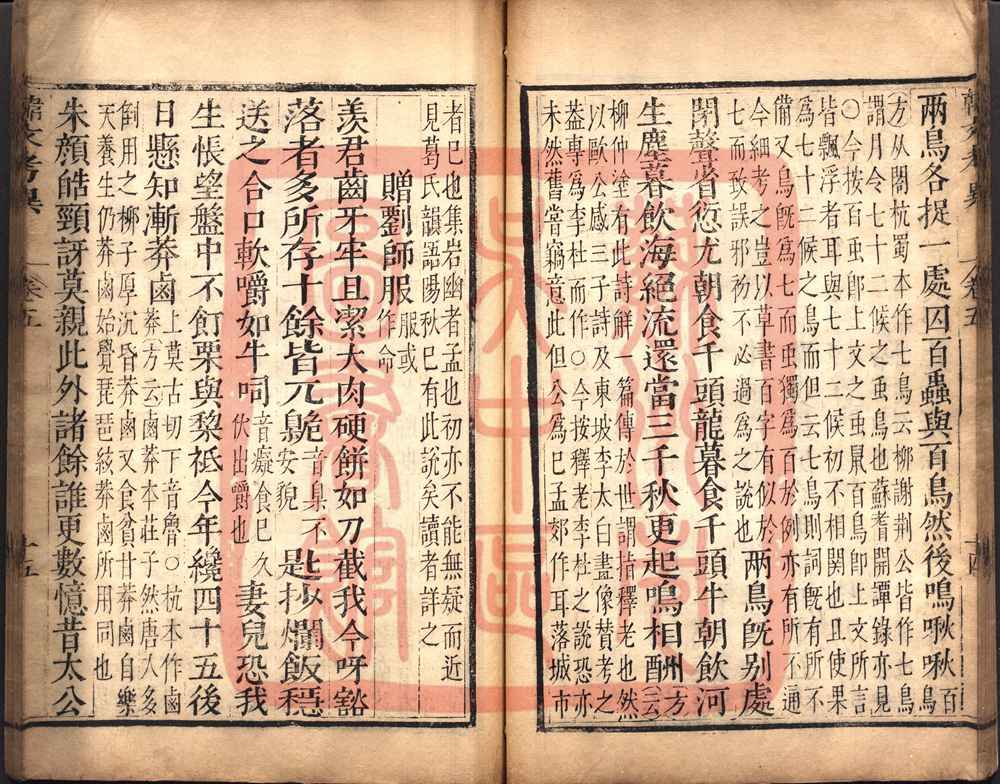 兩鳥各捉一處囚百蟲與百鳥然後鳴啾啾百鳥
方从閣杭蜀本作七鳥云柳謝荊公皆作七鳥
謂月令七十二候之虫鳥也蘇耆開譚錄亦見
○今按百虫卽上文之虫鼠百鳥卽上文所言
皆飄浮者耳與七十二候初不相關也且使果
為七十二候之鳥而但云七鳥則詞旣有所不
備又鳥旣爲七而虫獨爲百於例亦有所不通
今細考之豈以草書百字有似於
七而致誤邪初不必過爲之說也
兩鳥旣别處
閉聲省愆尤朝食千頭龍暮食千頭牛朝飲河
生塵暮飲海絕流還當三千秋更起鳴相酬方云
柳仲塗有此詩解一篇傳於世謂指釋老也然
以歐公感三子詩及東坡李太白畫像贊考之
蓋專為李杜而作○今按釋老李杜之說恐亦
未然舊嘗竊意此但公為巳孟郊作耳落城市
韓文考異
卷五
十四
者巳也集岩幽者孟也初亦不能無疑而近
見葛氏韻語陽秋巳有此說矣讀者詳之
贈劉師服服或作命
羨君齒牙牢且潔大肉硬餅如刀截我今呀豁
落者多所存十餘皆兀臲音臬不安貌匙抄爛飯穩
送之合口軟嚼如牛呞音癡食巳久伏出嚼也妻兒恐我
生悵望盤中不飣栗與棃祇今年纔四十五後
日懸知漸莽鹵
上莫古切下音魯○杭本作鹵
莽○方云鹵莽本莊子然唐人多
倒用之柳子厚沉昏莽鹵又食貧甘莽鹵自樂
天養生仍莽鹵始覺琵琶絃莽鹵所用同也
朱顏皓頸訝莫親此外諸餘誰更數憶昔太公
韓文考異
卷五
十五